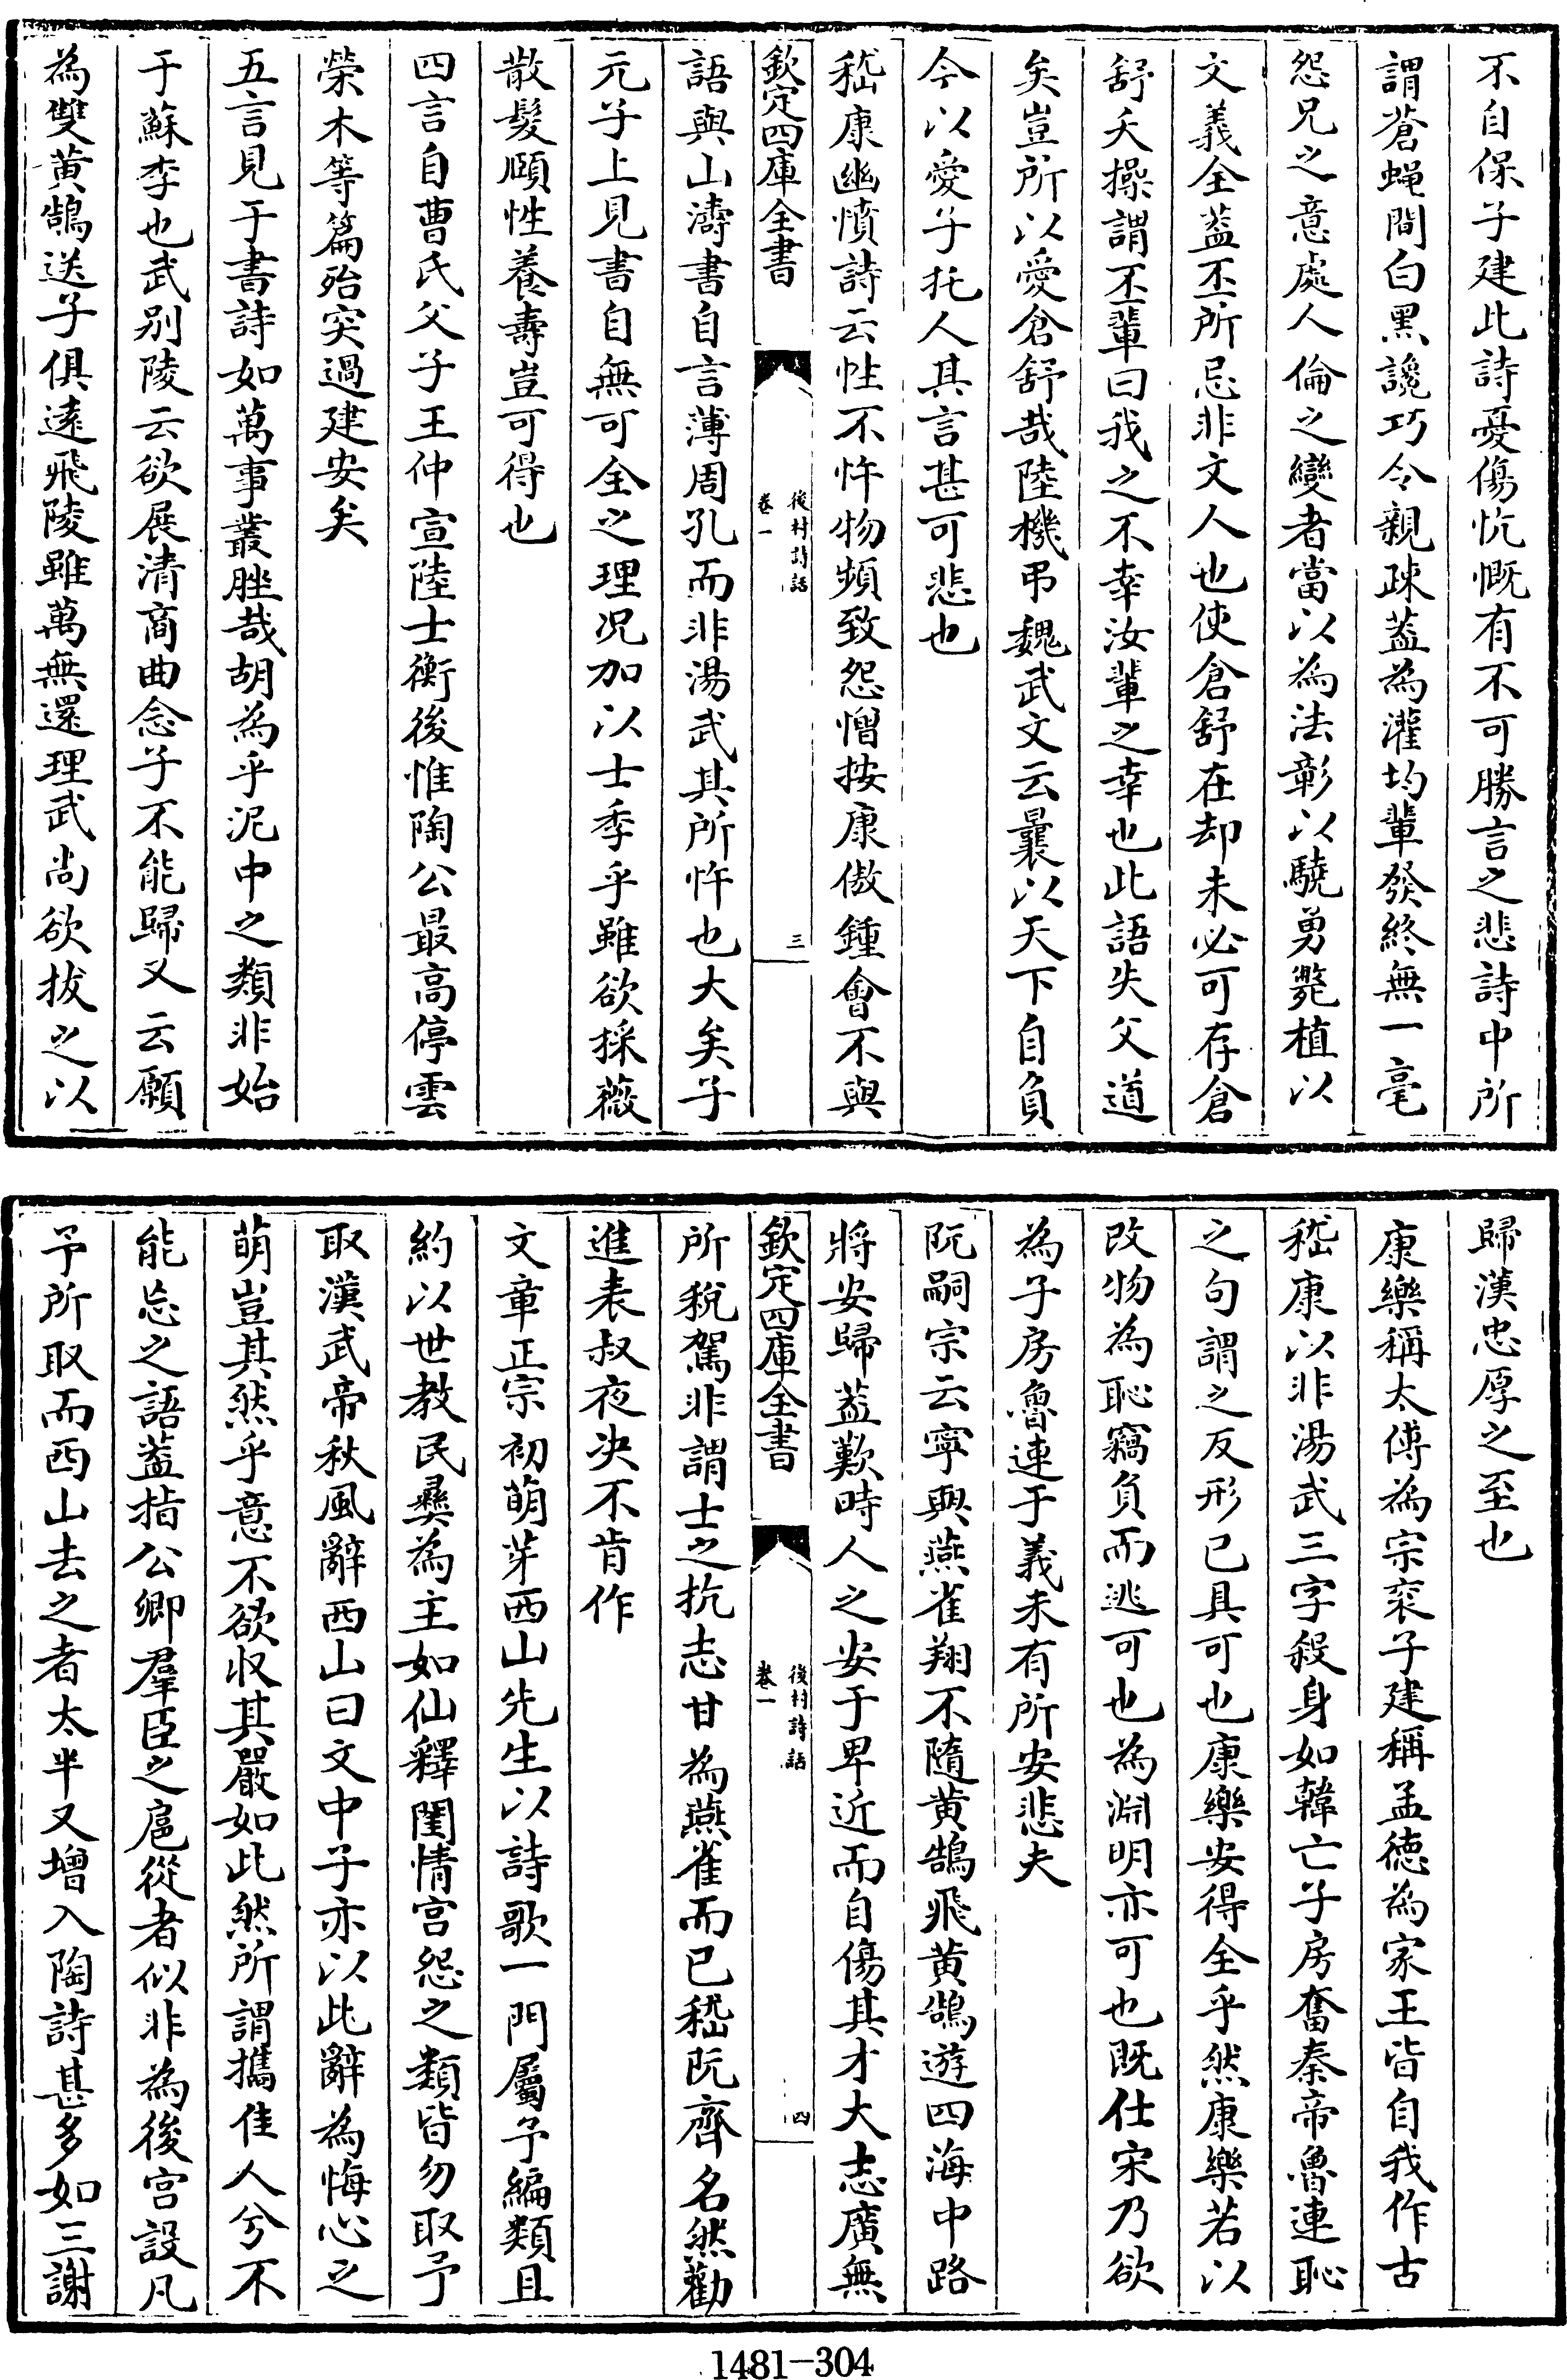 不自保子建此詩憂傷忼慨有不可勝言之悲詩中所
謂蒼蝇間白黒讒巧令親疎葢為灌均輩發終無一毫
怨兄之意處人倫之變者當以為法彰以驍勇斃植以
文義全葢丕所忌非文人也使倉舒在却未必可存倉
舒夭操謂丕輩曰我之不幸汝輩之幸也此語失父道
矣豈所以愛倉舒哉陸機弔魏武文云曩以天下自負
今以愛子托人其言甚可悲也
嵇康幽憤詩云性不忤物頻致怨憎按康傲鍾會不與
欽定四庫全書
後村詩話
卷一
三
語與山濤書自言薄周孔而非湯武其所忤也大矣子
元子上見書自無可全之理况加以士季乎雖欲採薇
散髮頤性養壽豈可得也
四言自曹氏父子王仲宣陸士衡後惟陶公最高停雲
榮木等篇殆突過建安矣
五言見于書詩如萬事叢脞哉胡為乎泥中之類非始
于蘇李也武别陵云欲展清商曲念子不能歸又云願
為雙黄鵠送子俱逺飛陵雖萬無還理武尚欲拔之以
歸漢忠厚之至也
康樂稱太傅為宗衮子建稱孟徳為家王皆自我作古
嵇康以非湯武三字殺身如韓亡子房奮秦帝魯連恥
之句謂之反形已具可也康樂安得全乎然康樂若以
改物為恥竊負而逃可也為淵明亦可也既仕宋乃欲
為子房魯連于義未有所安悲夫
阮嗣宗云寧與燕雀翔不隨黄鵠飛黄鵠遊四海中路
將安歸葢歎時人之安于卑近而自傷其才大志廣無
欽定四庫全書
後村詩話
卷一
四
所稅駕非謂士之抗志甘為燕雀而已嵇阮齊名然勸
進表叔夜决不肯作
文章正宗初萌芽西山先生以詩歌一門屬予編類且
約以世教民彝為主如仙釋閨情宫怨之類皆勿取予
取漢武帝秋風辭西山曰文中子亦以此辭為悔心之
萌豈其然乎意不欲收其嚴如此然所謂攜佳人兮不
能忘之語葢指公卿羣臣之扈從者似非為後宫設凡
予所取而西山去之者太半又增入陶詩甚多如三謝
1481-304